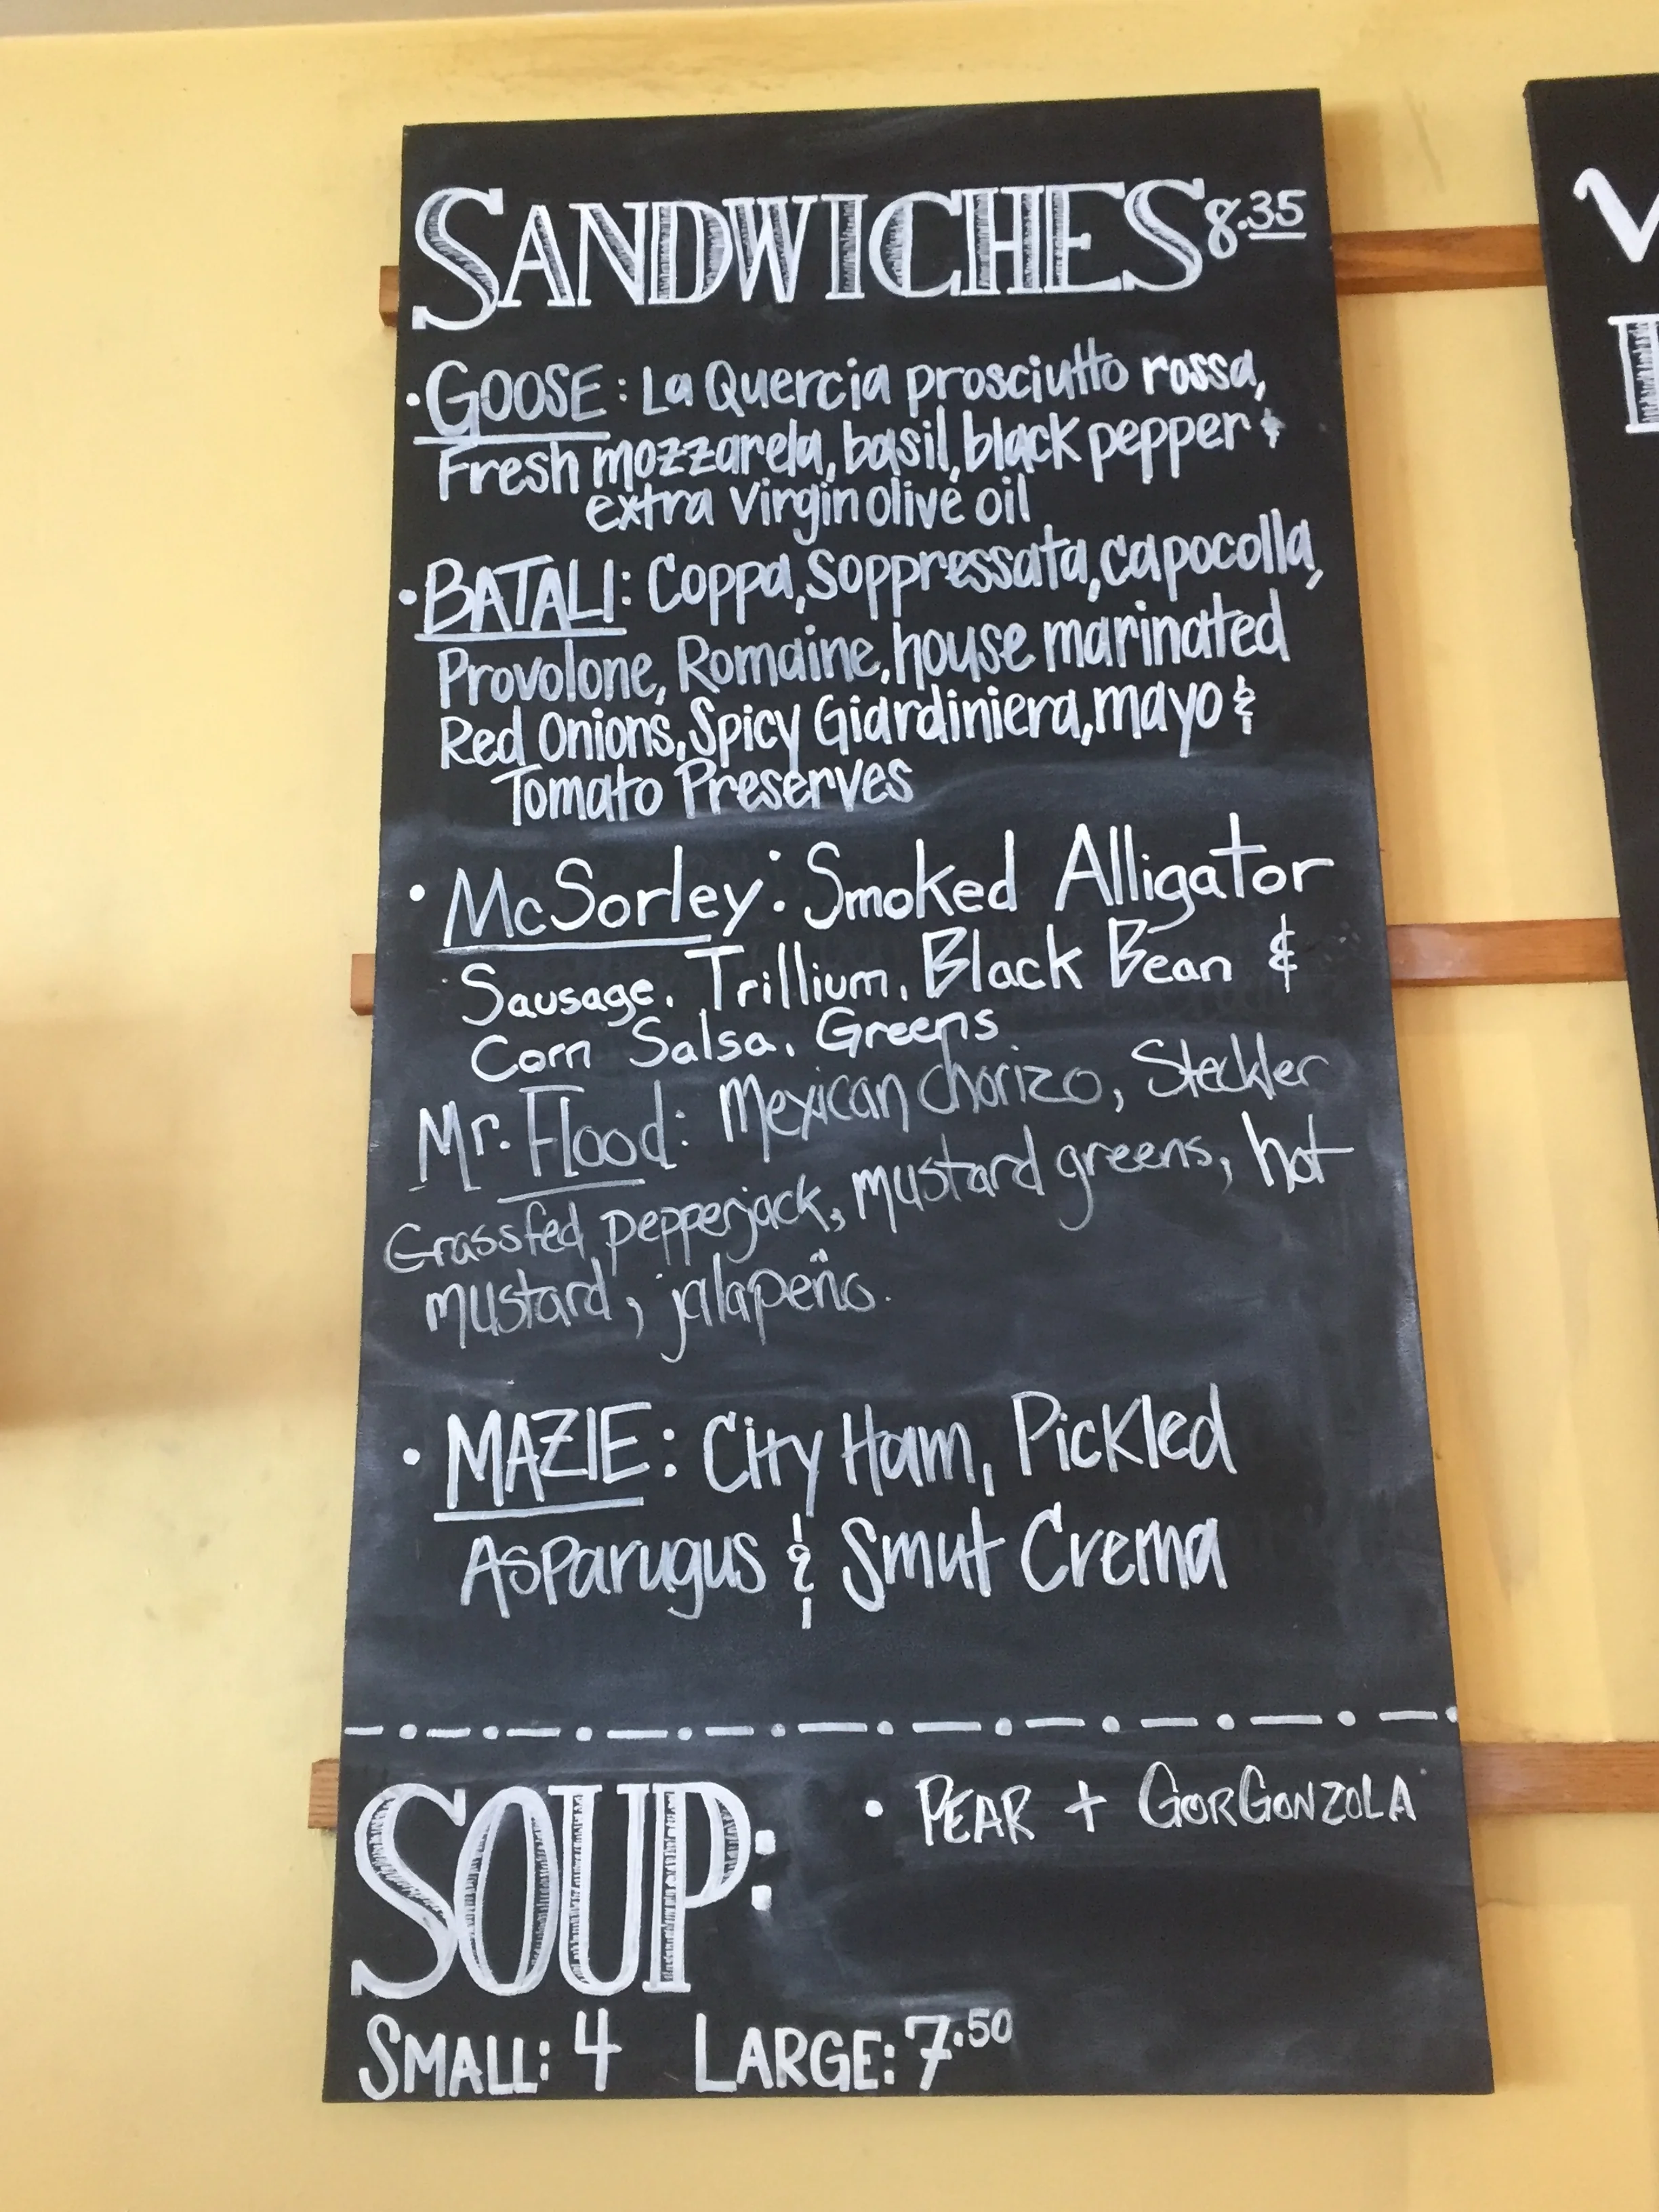 SANDWICHES 8.35
• GOOSE: La Quercia prosciutto rossa,
Fresh mozzarela, basil, black pepper &
extra virgin olive oil
• BATALI: Coppa, Soppressata, capocolla,
Provolone, Romaine, house marinated
Red Onions, Spicy Giardiniera, mayo &
Tomato Preserves
• McSorley: Smoked Alligator
Sausage, Trillium, Black Bean &
Corn Salsa, Greens
Mr. Flood: Mexican chorizo, Steckler
Grassfed pepperjack, mustard greens, hot
mustard, jalapeño.
• MAZIE: City Ham, Pickled
Asparugus & Smut Crema
SOUP: • PEAR + GORGONZOLA
SMALL: 4 LARGE: 7.50